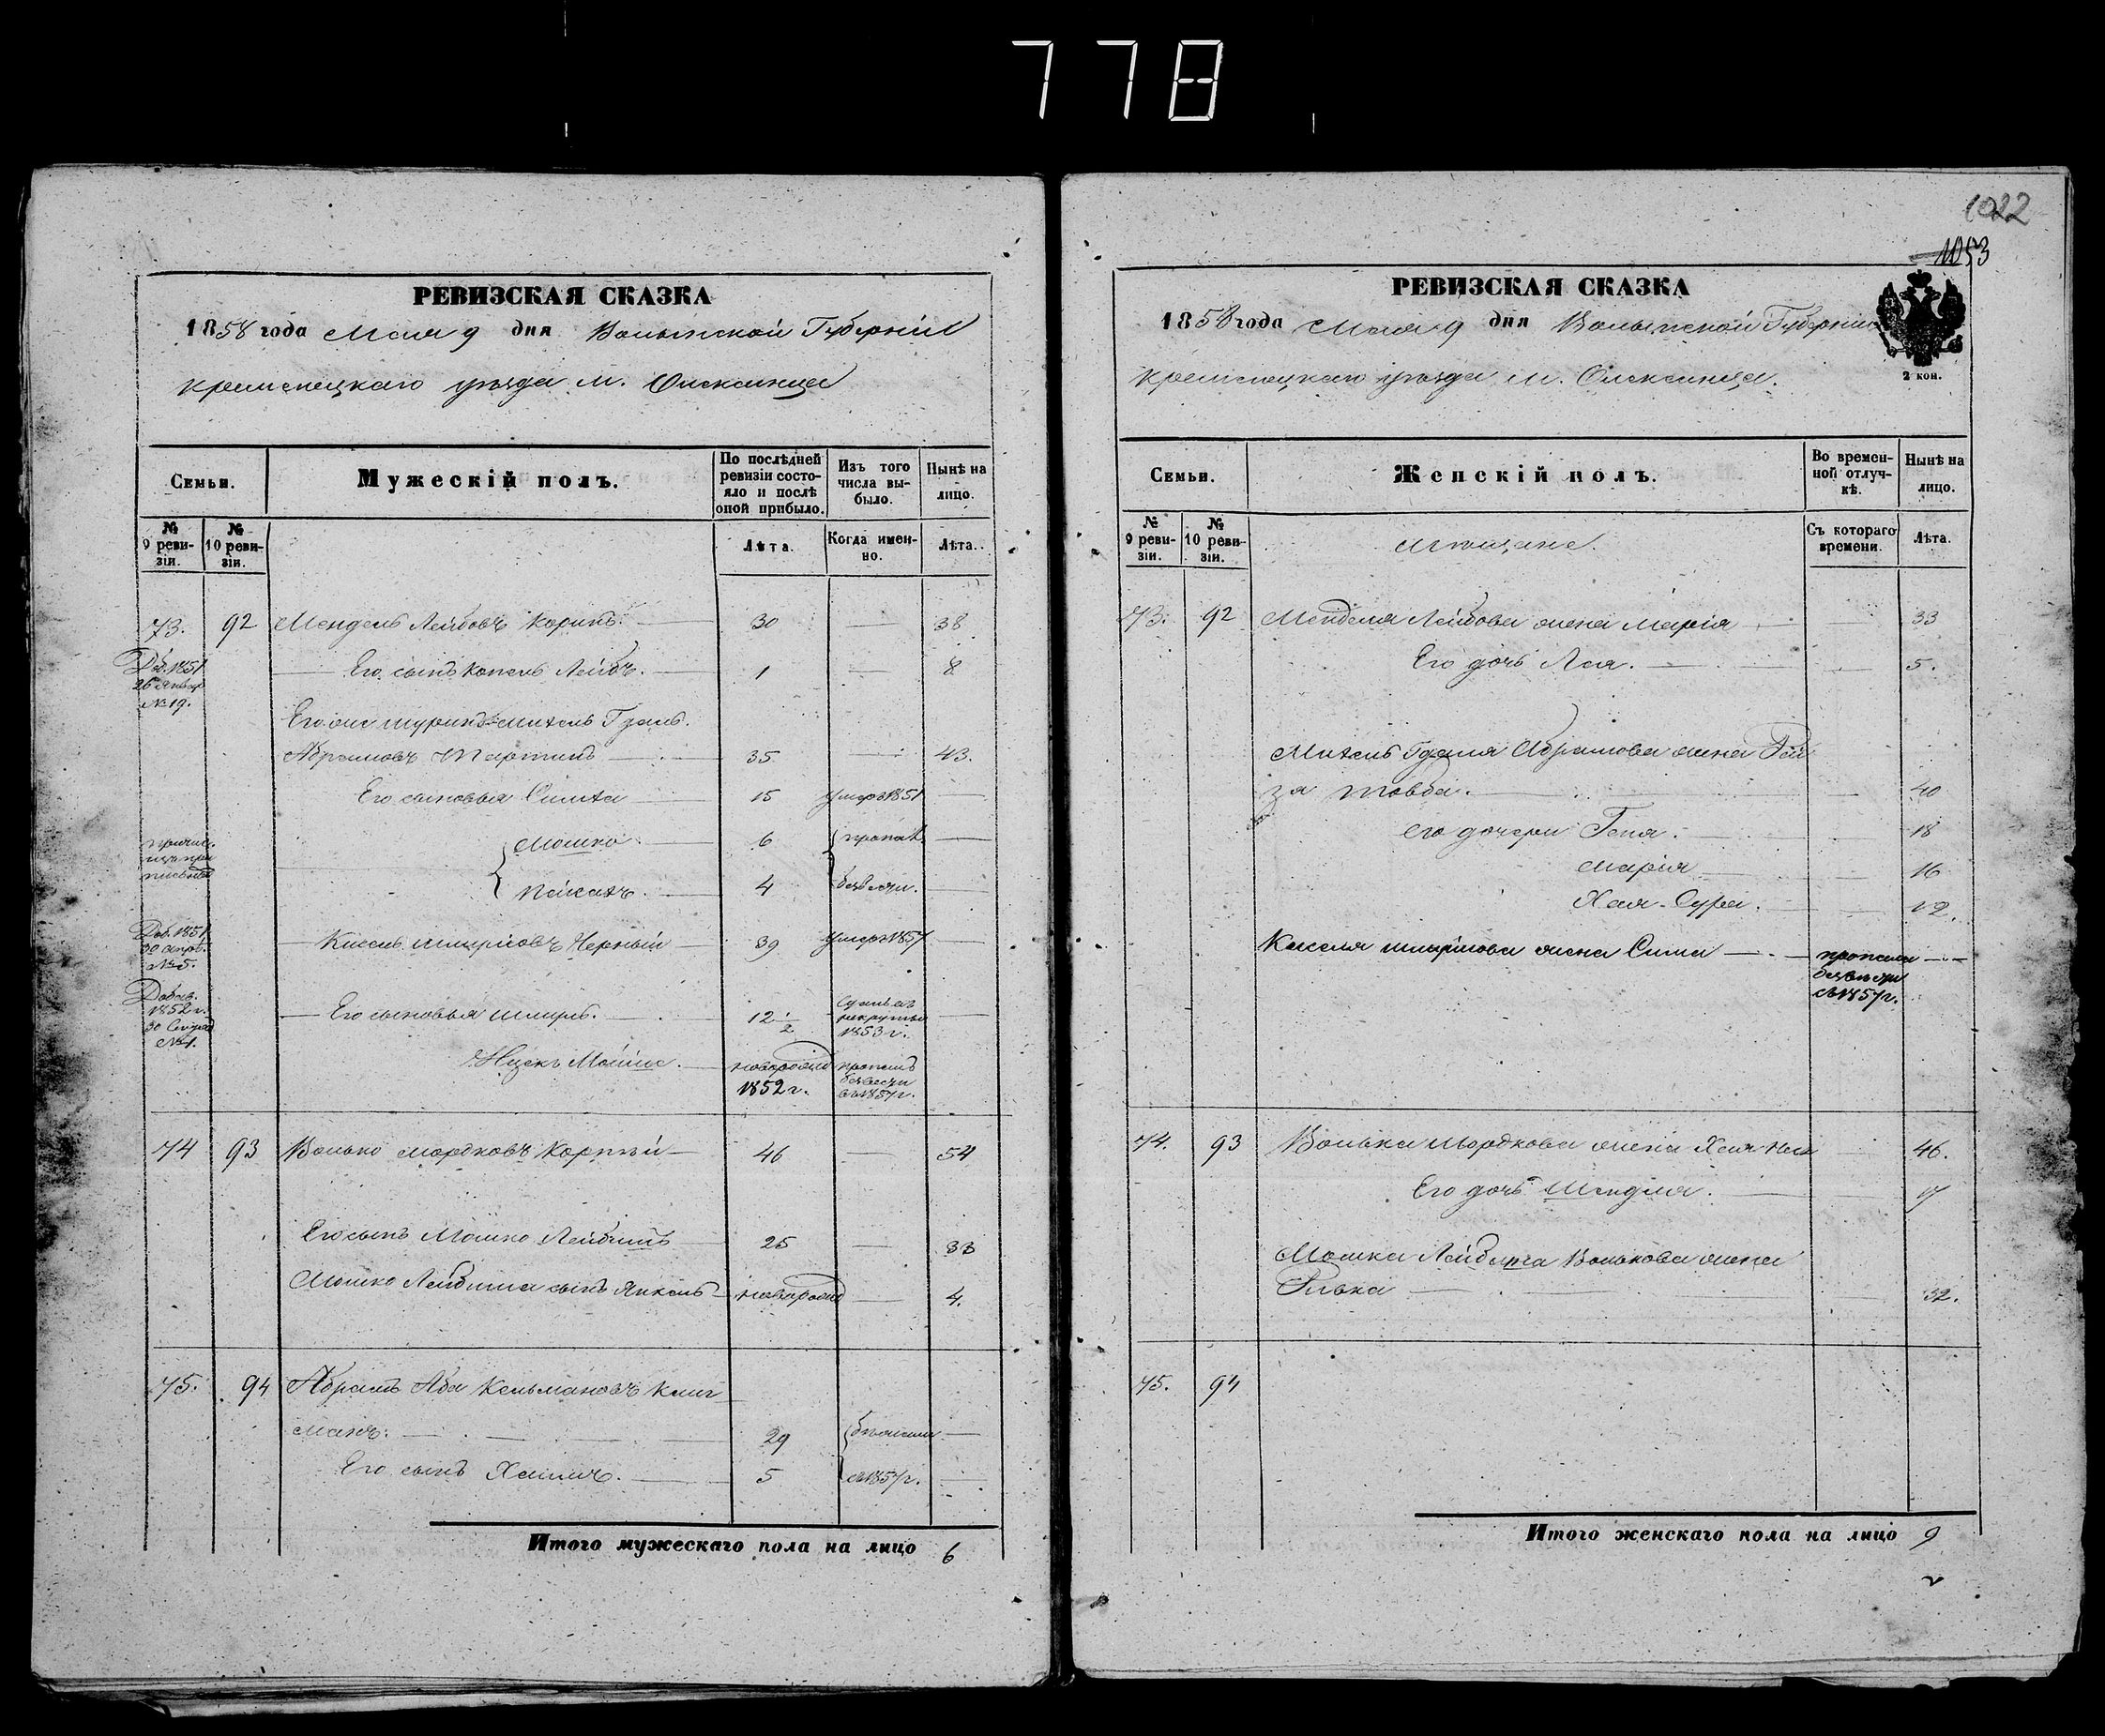 778
1022
1053
РЕВИЗСКАЯ СКАЗКА
1858 года Мая 9 дня Волынской Губерніи
Кременецкаго уѣзда м. Олексинца
Семьи.
Мужескій полъ.
По послѣдней ревизіи состояло и послѣ оной прибыло.
Изъ того числа выбыло.
Нынѣ на лицо.
№ 9 ревизіи.
№ 10 ревизіи.
Лѣта.
Когда именно.
Лѣта.
73. 92 Мендель Лейбовъ 30 — 38
Доб. 1851 26 Январ №19.
Его сынъ Копель Лейбъ. 1 — 8
Абрамовъ 35 — 43.
Его сыновья 15 умеръ 1851 —
Мошко 6 пропал. —
4 безвести. —
Доб. 1851 30 Апрѣ. №5.
Кисель Шмуйловъ Черный 39 умеръ 1857 —
Добав. 1852 г. 30 №1.
Его сыновья Шмуль. 12 1/2 рекруты 1853 г. —
Ицекъ Мойше. новорожд 1852 г. пропалъ безвести съ 1857 г.
74 93 Волько Мордковъ 46 — 54
Его сынъ Мошко Лейбишъ 25 — 33
Мошко Лейбиша сынъ Янкель новорожд — 4.
75. 94 Абрамъ Аба Кельмановъ Клигманъ. 29 бѣжали —
Его сынъ Хаимъ. 5 съ 1857 г. —
Итого мужескаго пола на лицо 6
РЕВИЗСКАЯ СКАЗКА
1858 года Мая 9 дня Волынской Губерніи
Кременецкаго уѣзда м. Олексинца.
2 коп.
Семьи.
Женскій полъ.
Во временной отлучкѣ.
Нынѣ на лицо.
№ 9 ревизіи.
№ 10 ревизіи.
Мѣщане.
Съ котораго времени.
Лѣта.
73. 92 Менделя Лейбова жена Марія 33
Его дочь Лея. 5.
Михель Гдаля Абрамова жена Рейзя Товба. 40
Его дочери Геня. 18
Марія 16
Хая-Сура. 12.
Киселя Шмуйлова жена Сима — пропала безвести съ 1857 г. —
74. 93 Волька Мордкова жена Хая 46.
Его дочь Шендля. 17
Мошка Лейбиша Волькова жена
Ривка 32.
75. 94
Итого женскаго пола на лицо 9